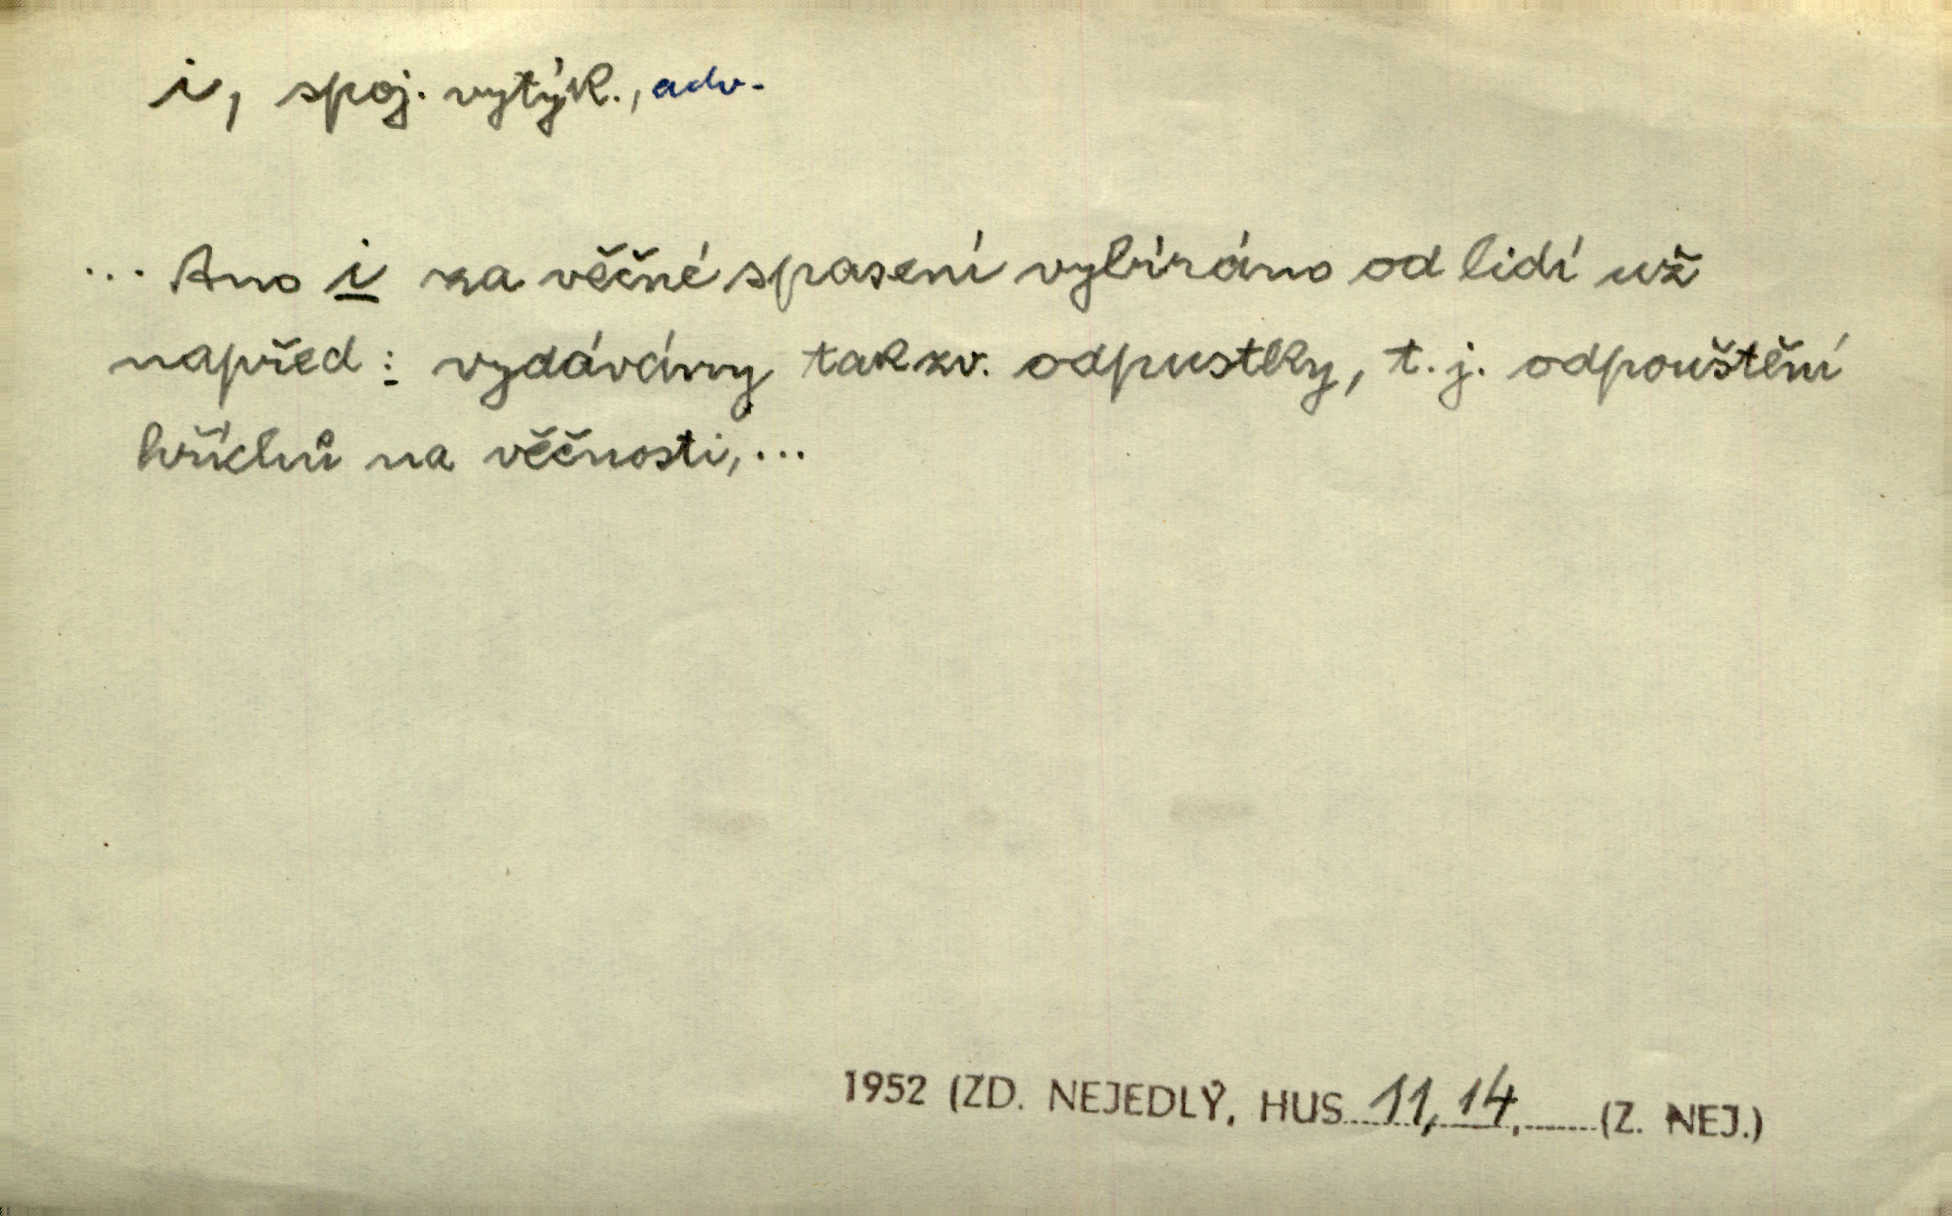 i, spoj. vytýk., adv.
... Ano i za věčné spasení vybíráno od lidí už
napřed: vydávány takzv. odpustky, t. j. odpouštění
hříchů na věčnosti, ...
1952 (ZD. NEJEDLÝ, HUS 11, 14, (Z. NEJ.)